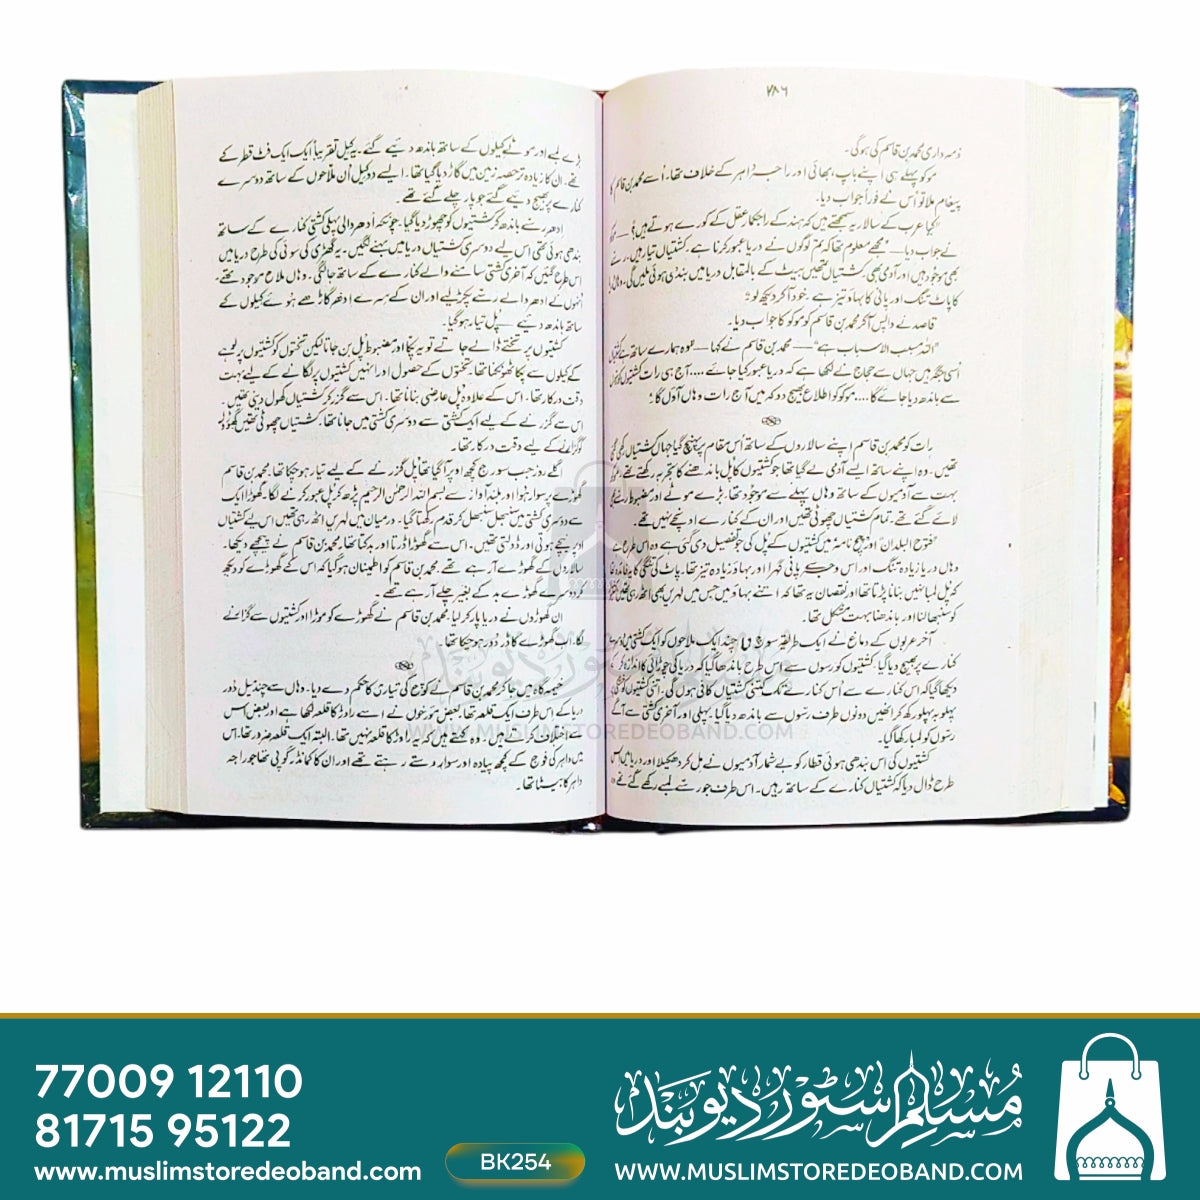 ۷۸۶
ذمہ داری محمد بن قاسم کی ہو گی۔
موکو پہلے سی اپنے باپ، بھائی اور راجہ داہر کے خلاف تھا، اُسے محمد بن قاسم کا
پیغام ملا تو اُس نے فوراً جواب دیا۔
"کیا عرب کے سالار یہ سمجھتے ہیں کہ ہند کے راجکمار عقل کے کورے ہوتے ہیں؟
نے جواب دیا — "مجھے معلوم تھا کہ تم لوگوں نے دریا عبور کرنا ہے۔ کشتیاں تیار ہیں۔ رسے
بھی موجود ہیں اور آدمی بھی۔ کشتیاں تمہیں بیٹ کے بالمقابل دریا میں بندھی ہوئی ملیں گی۔ وہاں
کا پاٹ تنگ اور پانی کا بہاؤ تیز ہے۔ خود آ کر دیکھ لو"
قاصد نے واپس آ کر محمد بن قاسم کو موکو کا جواب دیا۔
"اللہ مسبب الاسباب ہے" — محمد بن قاسم نے کہا — "وہ ہمارے ساتھ ہے
اُسی جگہ ہیں جہاں سے حجاج نے لکھا ہے کہ دریا عبور کیا جائے .... آج ہی رات کشتیوں کو
سے باندھ دیا جائے گا .... موکو کو اطلاع بھیج دو کہ میں آج رات وہاں آؤں گا"
رات کو محمد بن قاسم اپنے سالاروں کے ساتھ اُس مقام پر پہنچ گیا جہاں کشتیاں
تھیں۔ وہ اپنے ساتھ ایسے آدمی لے گیا تھا جو کشتیوں کا پل باندھنے کا تجربہ رکھتے تھے۔
بہت سے آدمیوں کے ساتھ وہاں پہلے سے موجود تھا۔ بڑے موٹے اور مضبوط رسے
لائے گئے تھے۔ تمام کشتیاں چھوٹی تھیں اور ان کے کنارے اونچے نہیں تھے۔
"فتوح البلدان" اور چچ نامہ میں کشتیوں کے پل کی جو تفصیل دی گئی ہے وہ اس طرح ہے
وہاں دریا زیادہ تنگ اور اس وجہ سے پانی گہرا اور بہاؤ زیادہ تیز تھا۔ پاٹ کی تنگی کا یہ فائدہ تھا
کہ پل لمبا نہیں بنانا پڑتا تھا اور نقصان یہ تھا کہ اتنے بہاؤ میں جس میں لہریں بھی اٹھ رہی تھیں
کو سنبھالنا اور باندھنا بہت مشکل تھا۔
آخر عربوں کے دماغ نے ایک طریقہ سوچ لیا۔ چند ایک ملاحوں کو ایک کشتی میں دوسرے
کنارے پر بھیج دیا گیا۔ کشتیوں کو رسوں سے اس طرح باندھا گیا کہ دریا کی چوڑائی کا اندازہ کر کے
دیکھا گیا کہ اس کنارے سے اُس کنارے تک کتنی کشتیاں کافی ہوں گی۔ اتنی کشتیوں کو
پہلو بہ پہلو رکھ کر انہیں دونوں طرف رسوں سے باندھ دیا گیا۔ پہلی اور آخری کشتی سے آگے
رسوں کو لمبا رکھا گیا۔
کشتیوں کی اس بندھی ہوئی قطار کو بے شمار آدمیوں نے مل کر دھکیلا اور دریا میں اس
طرح ڈال دیا کہ کشتیاں کنارے کے ساتھ رہیں۔ اس طرف جو رسے لمبے رکھے گئے تھے وہ
بڑے لمبے اور موٹے کیلوں کے ساتھ باندھ دیئے گئے۔ یہ کیل تقریباً ایک ایک فٹ قطر کے
تھے۔ ان کا زیادہ تر حصہ زمین میں گاڑ دیا گیا تھا۔ ایسے دو کیل اُن ملاحوں کے ساتھ دوسرے
کنارے پر بھیج دیئے گئے جو پار چلے گئے تھے۔
ادھر سے باندھ کر کشتیوں کو چھوڑ دیا گیا۔ چونکہ ادھر والی پہلی کشتی کنارے کے ساتھ
بندھی ہوئی تھی اس لیے دوسری کشتیاں دریا میں بہنے لگیں۔ یہ گھڑی کی سوئی کی طرح دریا میں
اس طرح گئیں کہ آخری کشتی سامنے والے کنارے کے ساتھ جا لگی۔ وہاں ملاح موجود تھے۔
انہوں نے ادھر والے رسے پکڑ لیے اور ان کے سرے ادھر گاڑھے ہوئے کیلوں کے
ساتھ باندھ دیئے — پل تیار ہو گیا۔
کشتیوں پر تختے ڈالے جاتے تو یہ پکا اور مضبوط پل بن جاتا لیکن تختوں کو کشتیوں پر لوہے
کے کیلوں سے پکا ٹھونکنا تھا۔ تختوں کے حصول اور انہیں کشتیوں پر لگانے کے لیے بہت
وقت درکار تھا۔ اس کے علاوہ پل عارضی بنانا تھا۔ اس سے گزر کر کشتیاں کھول دینی تھیں۔
اس سے گزرنے کے لیے ایک کشتی سے دوسری کشتی میں جانا تھا۔ کشتیاں چھوٹی تھیں گھوڑوں کو
گزارنے کے لیے وقت درکار تھا۔
اگلے روز جب سورج کچھ اوپر آ گیا تھا پل گزرنے کے لیے تیار ہو چکا تھا۔ محمد بن قاسم
گھوڑے پر سوار ہوا اور بلند آواز سے بسم اللہ الرحمٰن الرحیم پڑھ کر پل عبور کرنے لگا۔ گھوڑا ایک
سے دوسری کشتی میں سنبھل سنبھل کر قدم رکھتا گیا۔ درمیان میں لہریں اٹھ رہی تھیں اس لیے کشتیاں
اوپر نیچے ہوتی اور ڈولتی تھیں۔ اس سے گھوڑا ڈرتا اور بدکتا تھا۔ محمد بن قاسم نے پیچھے دیکھا۔
سالاروں کے گھوڑے آ رہے تھے۔ محمد بن قاسم کو اطمینان ہو گیا کہ اس کے گھوڑے کو دیکھ
کر دوسرے گھوڑے بدکے بغیر چلے آ رہے تھے۔
ان گھوڑوں نے دریا پار کر لیا۔ محمد بن قاسم نے گھوڑے کو موڑا اور کشتیوں سے گزارنے
لگا۔ اب گھوڑے کا ڈر دور ہو چکا تھا۔
خیمہ گاہ میں جا کر محمد بن قاسم نے کوچ کی تیاری کا حکم دے دیا۔ وہاں سے چند میل دُور
دریا کے اس طرف ایک قلعہ تھا۔ بعض مورخوں نے اسے راوڑ کا قلعہ لکھا ہے اور بعض اس
سے اختلاف کرتے ہیں۔ وہ کہتے ہیں کہ یہ راوڑ کا قلعہ نہیں تھا۔ البتہ ایک قلعہ ضرور تھا۔ اس
میں داہر کی فوج کے کچھ پیادہ اور سوار دستے رہتے تھے اور ان کا کمانڈر گوپی تھا جو راجہ
داہر کا بیٹا تھا۔
مسلم سٹور دیوبند
WWW.MUSLIMSTOREDEOBAND.COM
77009 12110
81715 95122
www.muslimstoredeoband.com
BK254
مسلم سٹور دیوبند
WWW.MUSLIMSTOREDEOBAND.COM